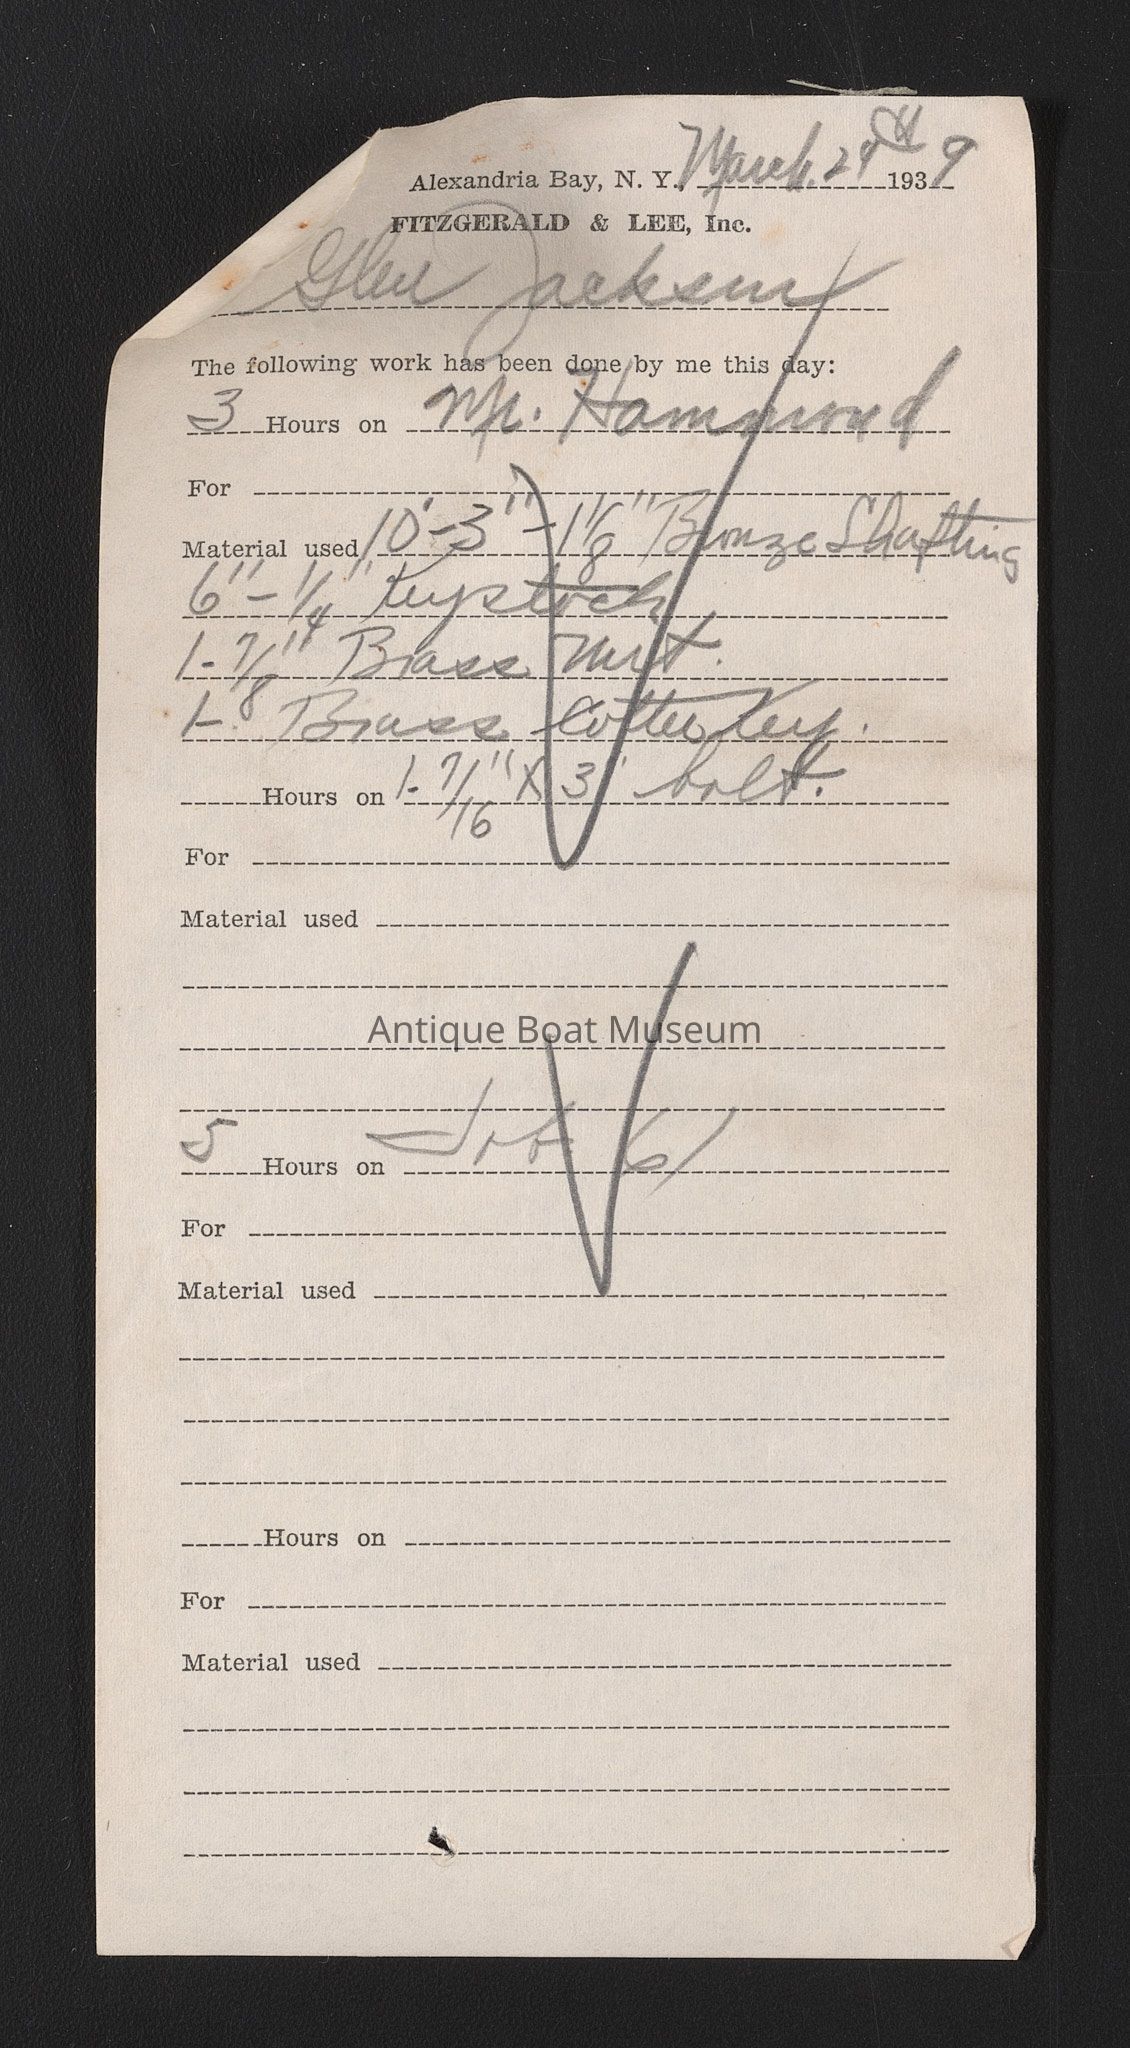 Alexandria Bay, N. Y., March 24th 1939
FITZGERALD & LEE, Inc.
Glen Jackson
The following work has been done by me this day:
3 Hours on Mr. Hammond
For
Material used 10'-3"-1 1/8" Bronze Shafting
6"-1/4" Keystock
1-7/8" Brass Nut.
1- Brass Cotter Key.
Hours on 1-7/16" X 3" bolt.
For
Material used
Antique Boat Museum
5 Hours on Job 61
For
Material used
Hours on
For
Material used